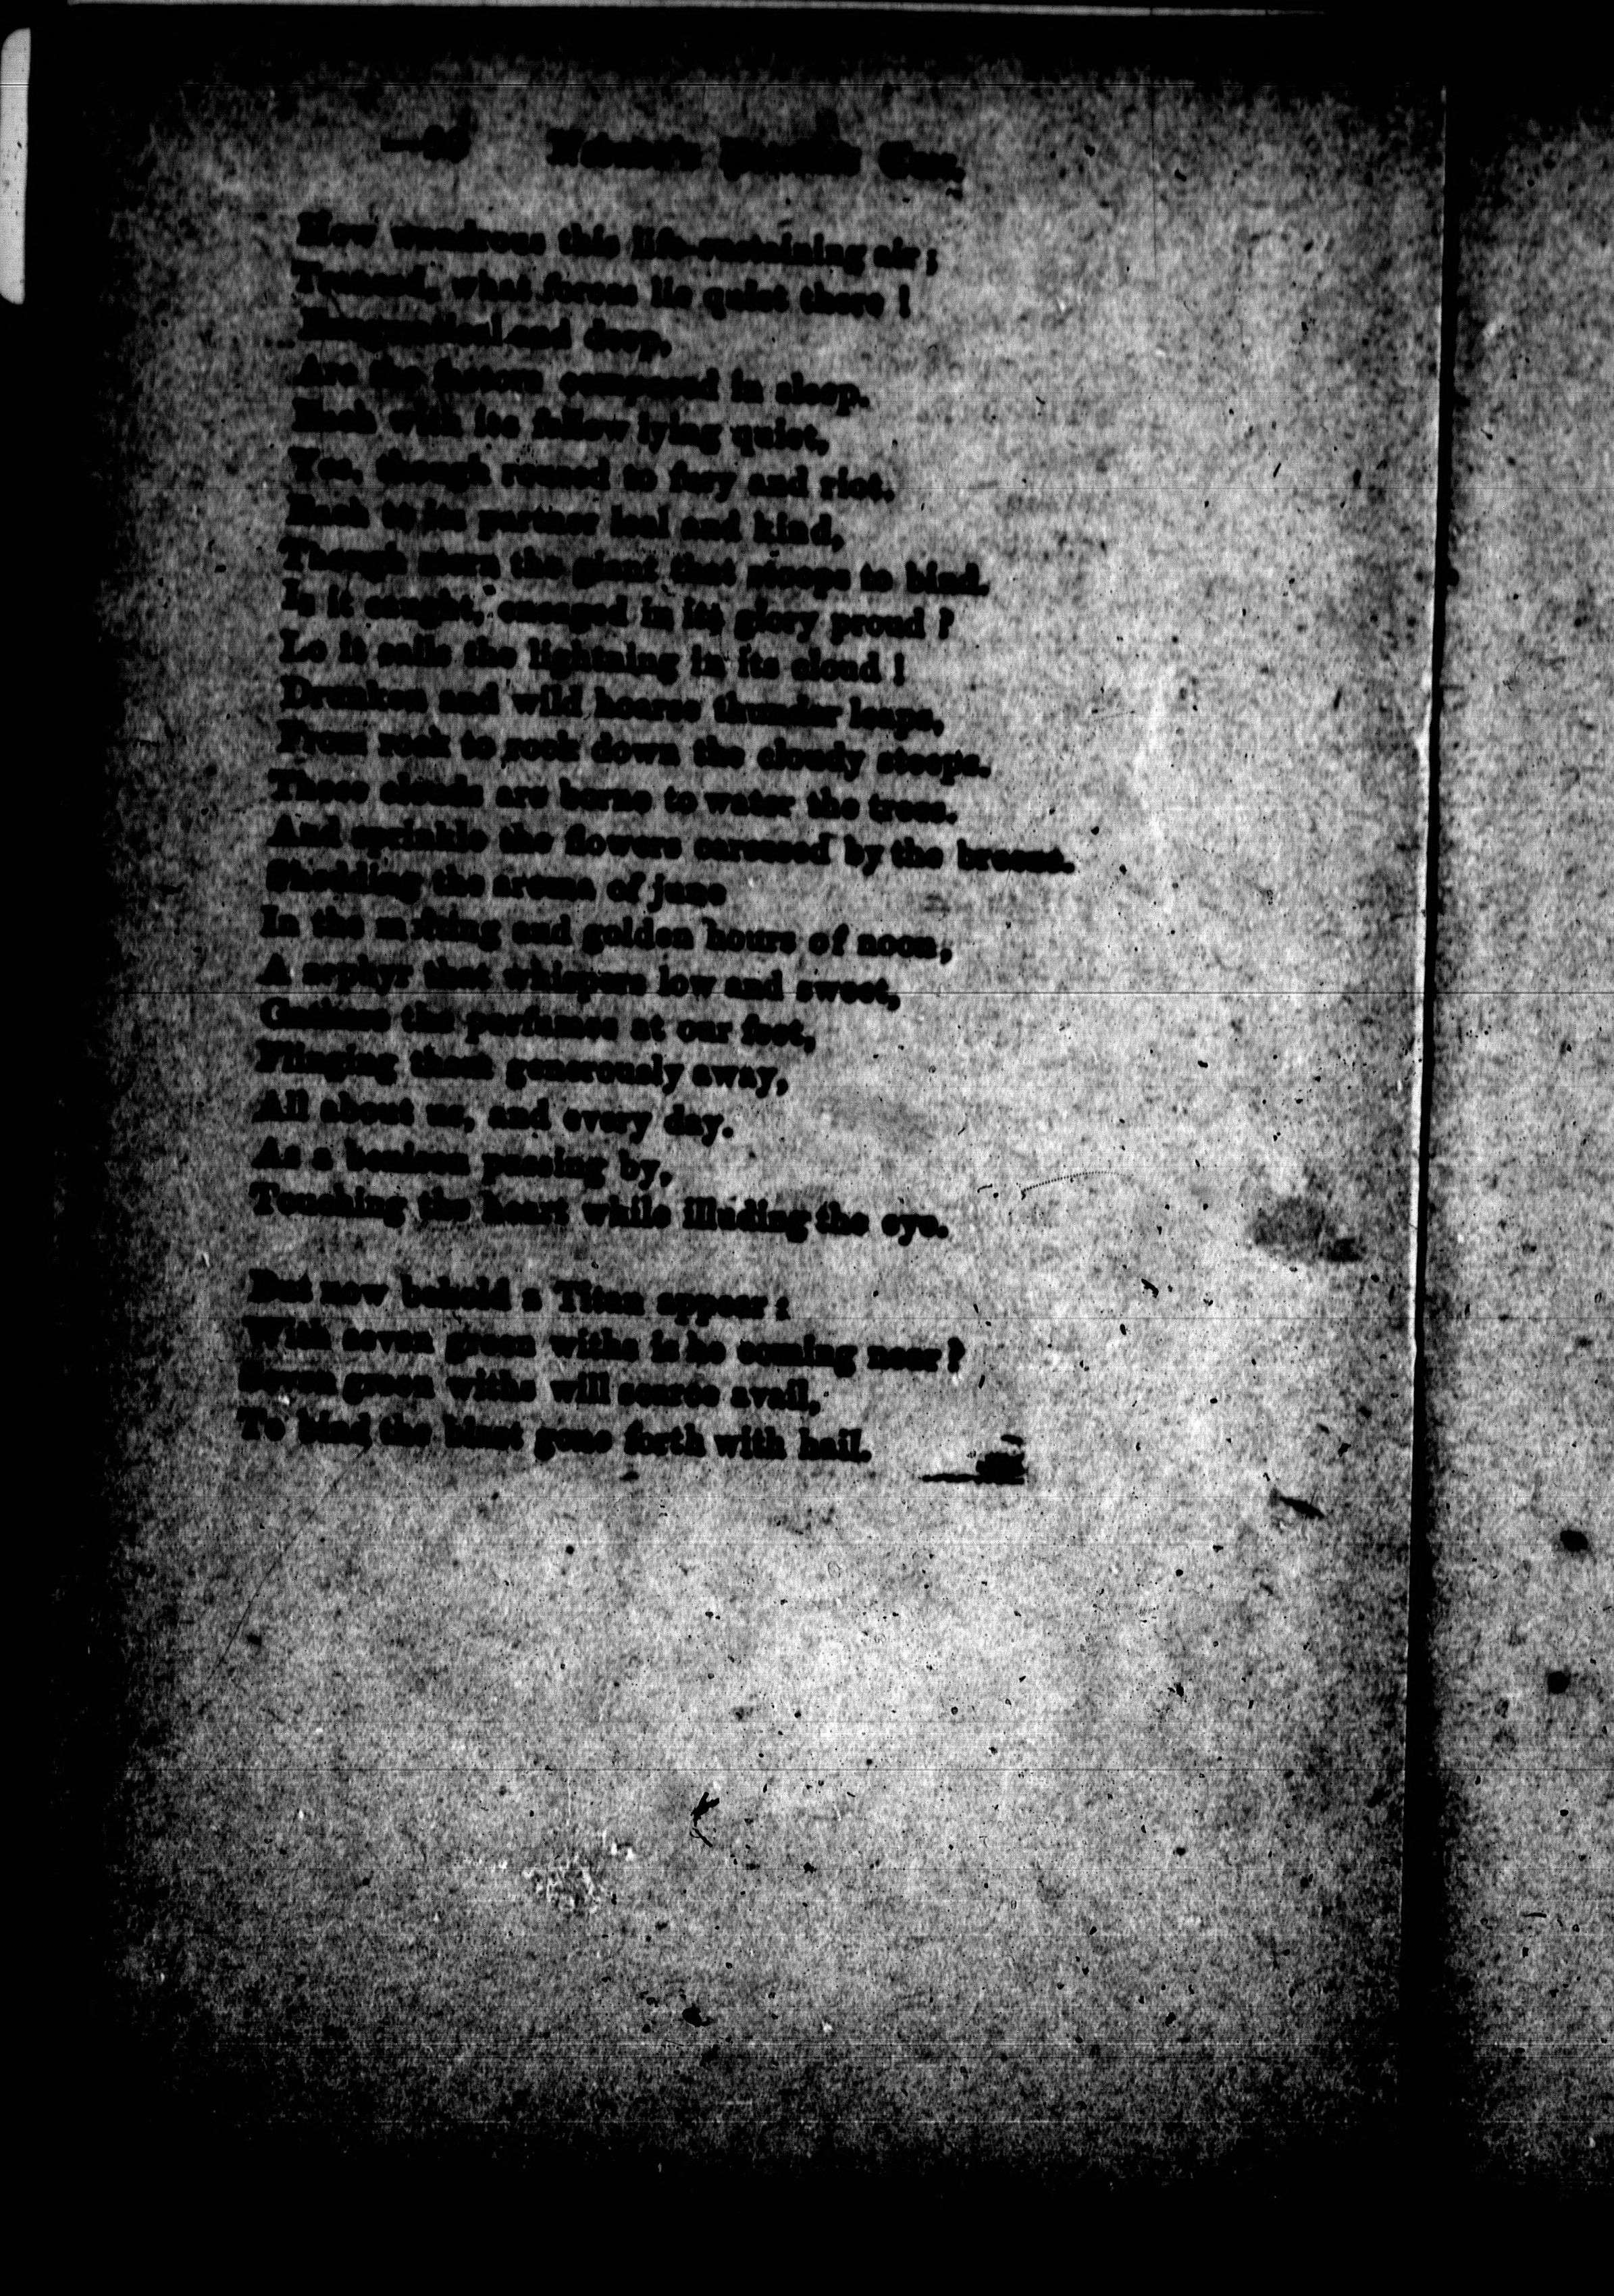 How wondrous this life-sustaining air;
what forces lie quiet there!
and deep,
Are the factors composed in sleep.
Each with its fellow lying quiet,
Yes, though roused to fury and riot.
Each to its partner leal and kind,
Though stern the giant that stoops to bind.
Is it caught, encaged in its glory proud?
Lo it sails the lightning in its cloud!
Drunken and wild hoarse thunder leaps,
From rock to rock down the cloudy steeps.
These clouds are borne to water the trees.
And sprinkle the flowers caressed by the breeze.
Shedding the aroma of june
In the and golden hours of noon,
A zephyr that whispers low and sweet,
Gathers the perfumes at our feet,
Flinging them generously away,
All about us, and every day.
As a benison passing by,
Touching the heart while illuding the eye.
But now behold a Titan appear:
With seven green withs is he coming near?
Seven green withs will scarce avail,
To bind the blast gone forth with hail.